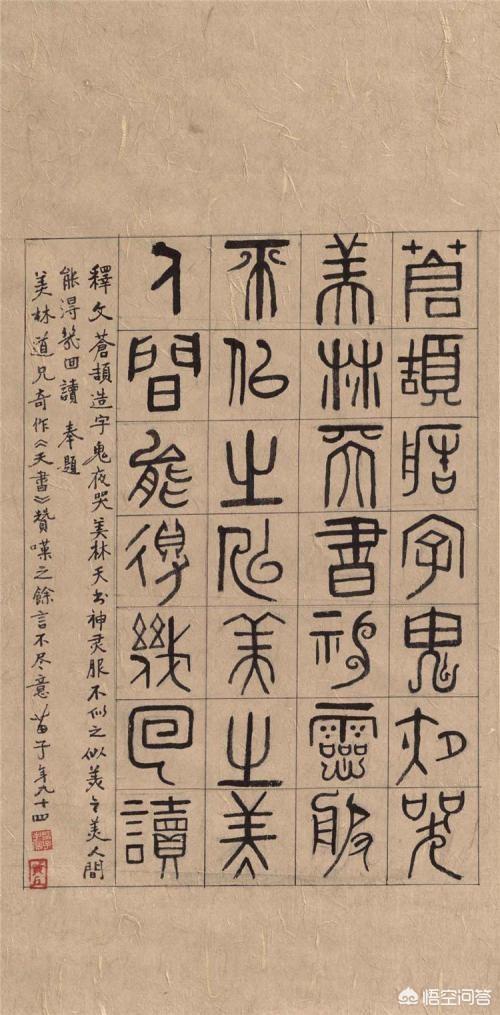 蒼頡造字鬼夜哭
美林天書神靈服
不似之似美之美
人間能得幾回讀
釋文 蒼頡造字鬼夜哭美林天书神灵服不似之似美之美人間
能得幾回讀 奉題
美林道兄奇作《天書》贊嘆之餘言不尽意 苗子年九十四
悟空问答